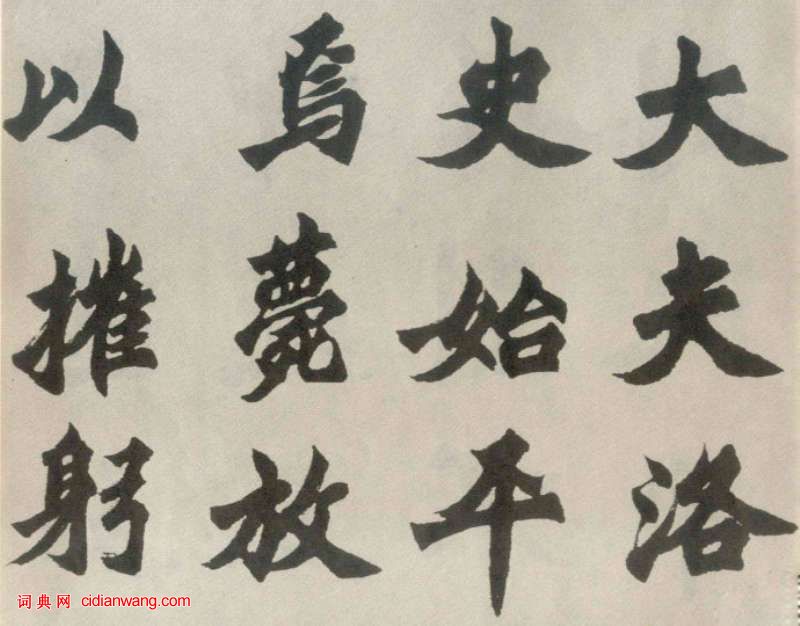 大夫洛
史始平
焉薨放
以摧躬
词典网 cidianwang.com